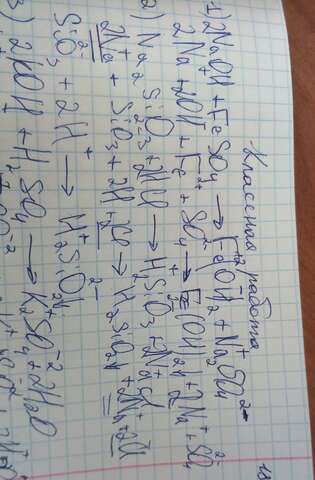 Классная работа
1) 2NaOH + FeSO4 → Fe(OH)2 + Na2SO4
2Na + 2OH + Fe2+ + SO4 2- → Fe(OH)2 + 2Na+ + SO4 2-
2) Na2SiO3 + 2HCl → H2SiO3 + 2NaCl
2Na+ + SiO3 + 2H + 2Cl → H2SiO3 + 2Na + 2Cl
SiO3 2- + 2H+ → H2SiO3
3) 2KOH + H2SO4 → K2SO4 + 2H2O